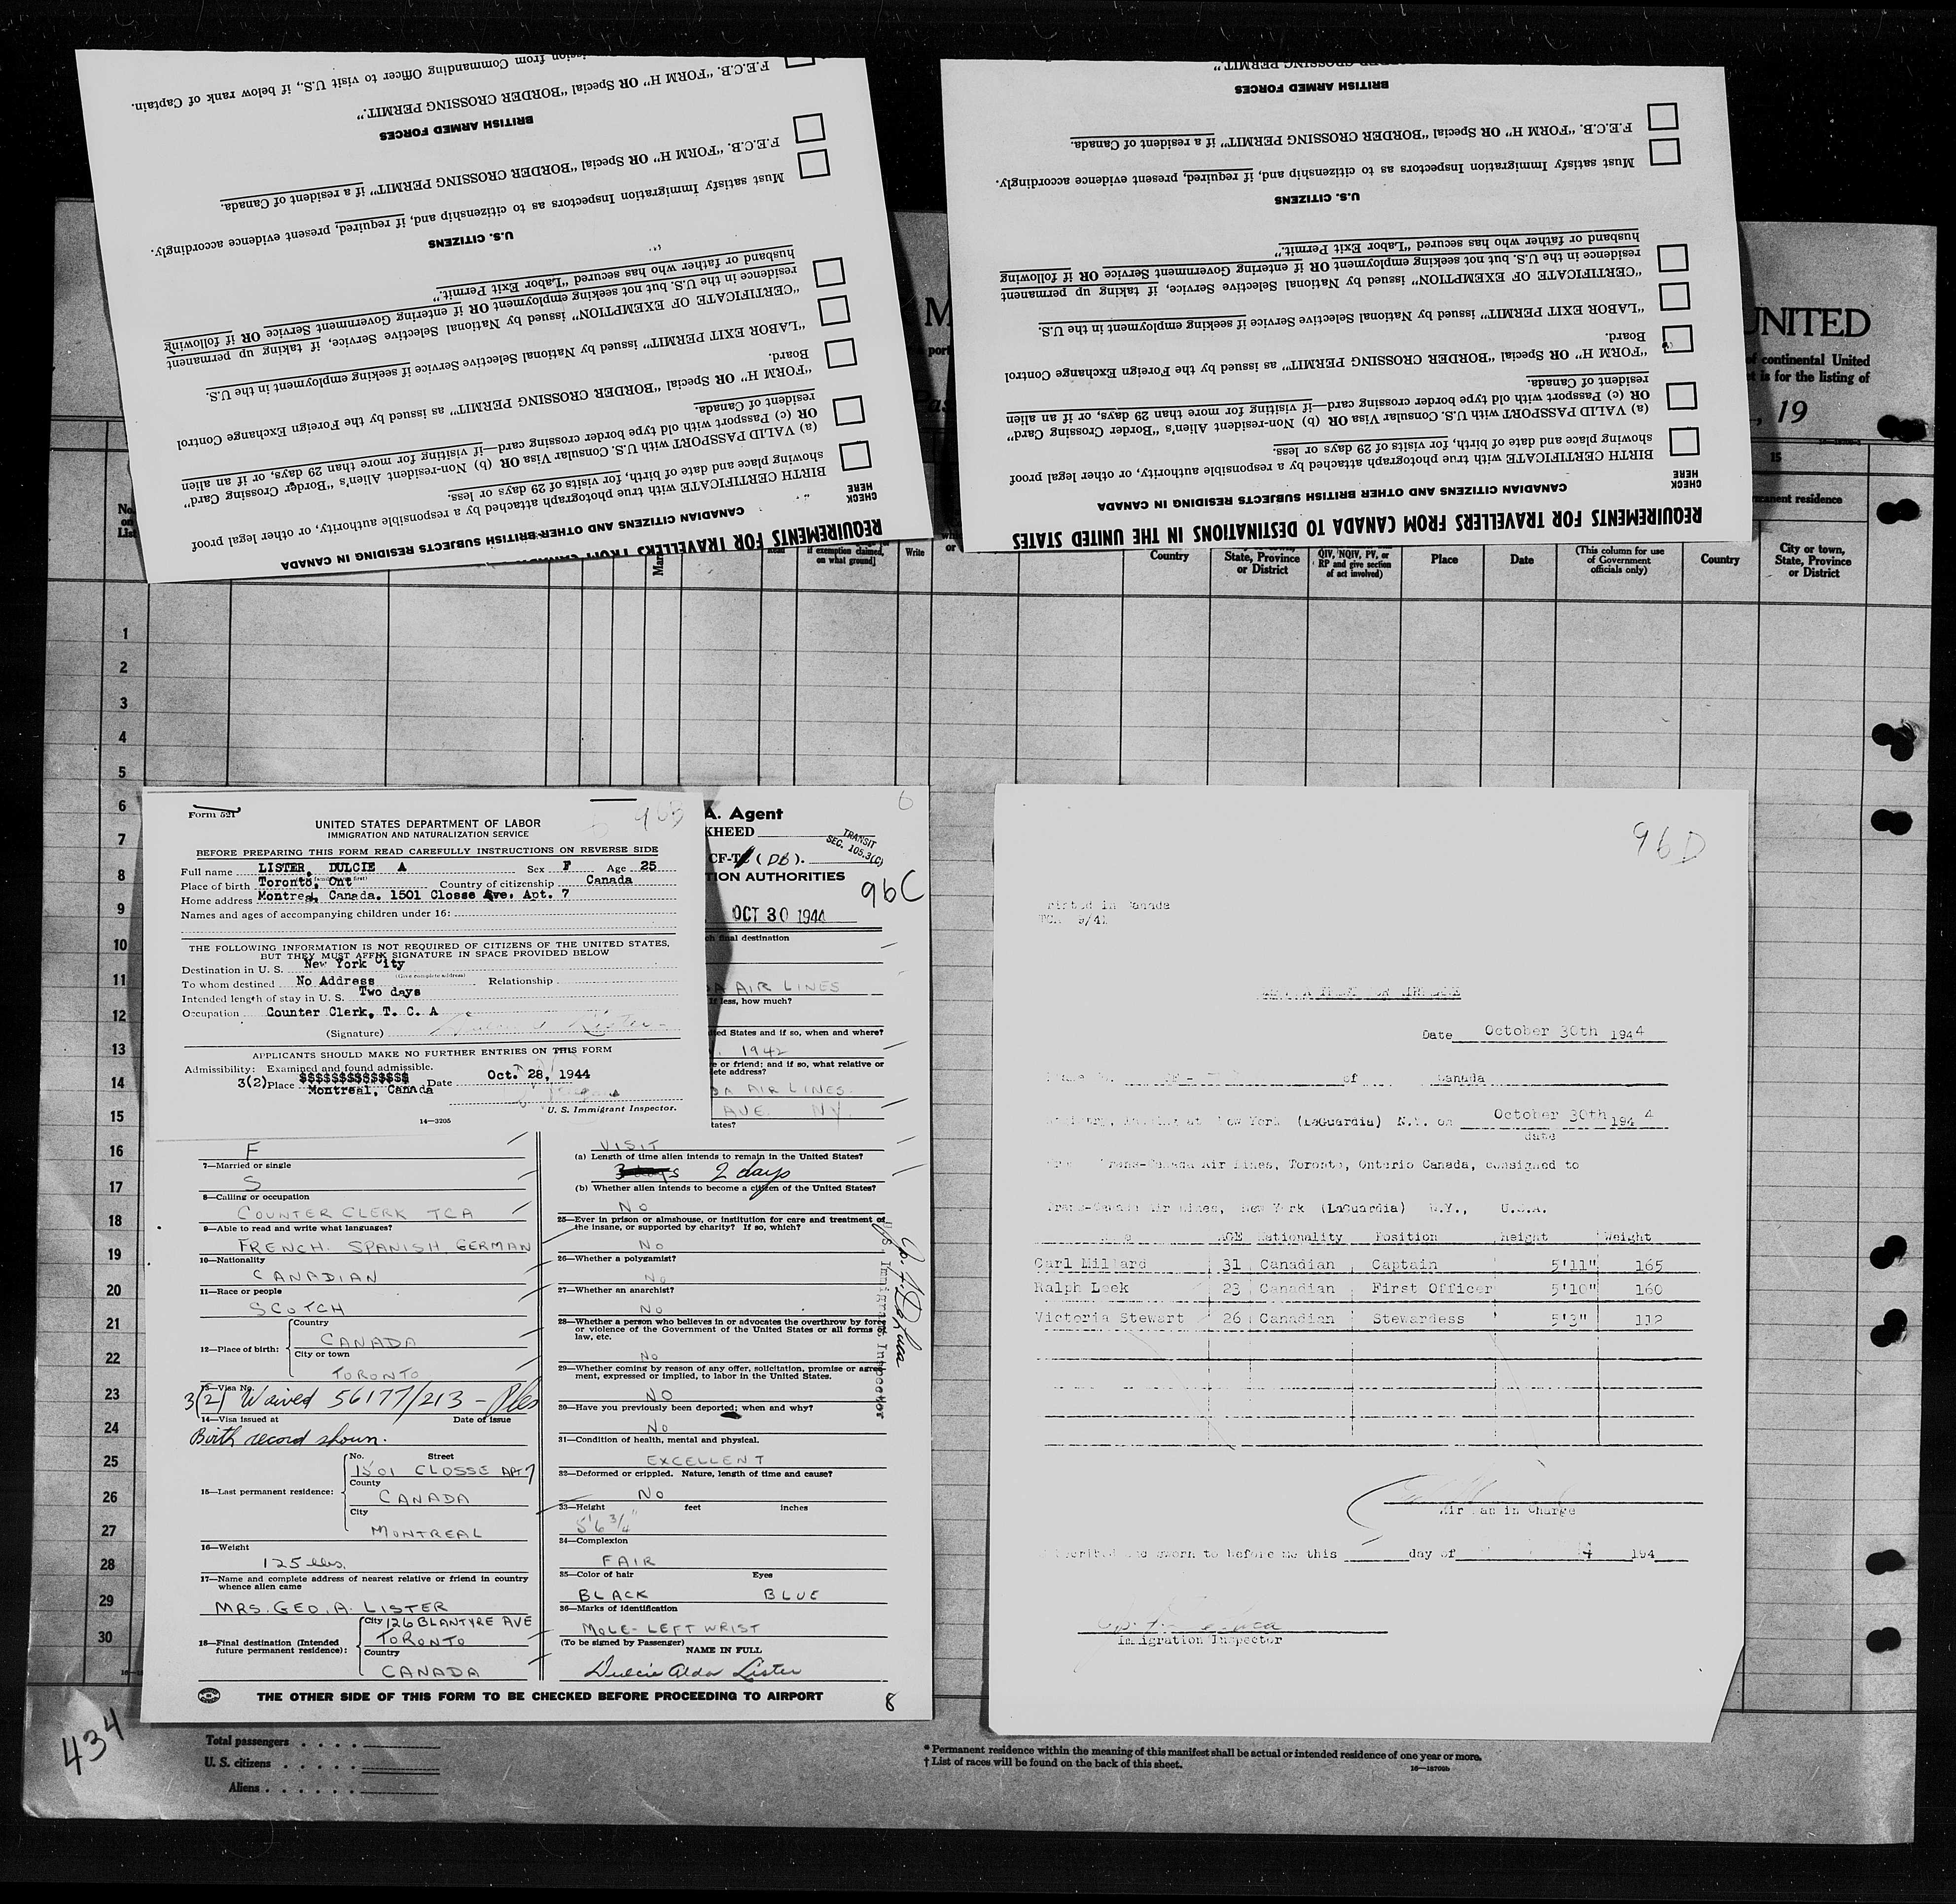 mission from Commanding Officer to visit U.S., if below rank of Captain.
F.E.C.B. "FORM H" OR Special "BORDER CROSSING PERMIT."
BRITISH ARMED FORCES
F.E.C.B. "FORM H" OR Special "BORDER CROSSING PERMIT" if a resident of Canada.
Must satisfy Immigration Inspectors as to citizenship and, if required, present evidence accordingly.
U.S. CITIZENS
husband or father who has secured "Labor Exit Permit."
residence in the U.S. but not seeking employment OR if entering Government Service OR if following
"CERTIFICATE OF EXEMPTION" issued by National Selective Service, if taking up permanent
"LABOR EXIT PERMIT" issued by National Selective Service if seeking employment in the U.S.
Board.
"FORM H" OR Special "BORDER CROSSING PERMIT" as issued by the Foreign Exchange Control
resident of Canada.
OR (c) Passport with old type border crossing card—if visiting for more than 29 days, or if an alien
(a) VALID PASSPORT with U.S. Consular Visa OR (b) Non-resident Alien's "Border Crossing Card"
showing place and date of birth, for visits of 29 days or less.
BIRTH CERTIFICATE with true photograph attached by a responsible authority, or other legal proof
CHECK HERE
CANADIAN CITIZENS AND OTHER BRITISH SUBJECTS RESIDING IN CANADA
REQUIREMENTS FOR TRAVELLERS FROM CANADA
BORDER CROSSING PERMIT."
BRITISH ARMED FORCES
F.E.C.B. "FORM H" OR Special "BORDER CROSSING PERMIT" if a resident of Canada.
Must satisfy Immigration Inspectors as to citizenship and, if required, present evidence accordingly.
U.S. CITIZENS
husband or father who has secured "Labor Exit Permit."
residence in the U.S. but not seeking employment OR if entering Government Service OR if following
"CERTIFICATE OF EXEMPTION" issued by National Selective Service, if taking up permanent
"LABOR EXIT PERMIT" issued by National Selective Service if seeking employment in the U.S.
Board.
"FORM H" OR Special "BORDER CROSSING PERMIT" as issued by the Foreign Exchange Control
resident of Canada.
OR (c) Passport with old type border crossing card—if visiting for more than 29 days, or if an alien
(a) VALID PASSPORT with U.S. Consular Visa OR (b) Non-resident Alien's "Border Crossing Card"
showing place and date of birth, for visits of 29 days or less.
BIRTH CERTIFICATE with true photograph attached by a responsible authority, or other legal proof
CHECK HERE
CANADIAN CITIZENS AND OTHER BRITISH SUBJECTS RESIDING IN CANADA
REQUIREMENTS FOR TRAVELLERS FROM CANADA TO DESTINATIONS IN THE UNITED STATES
UNITED
of continental United
is for the listing of
, 19
15
permanent residence
No. on List
if exemption claimed, on what ground]
Write
Country
State, Province or District
QIV, NQIV, PV, or RP and give section of act involved)
Place
Date
(This column for use of Government officials only)
Country
City or town, State, Province or District
1
2
3
4
5
6
7
8
9
10
11
12
13
14
15
16
17
18
19
20
21
22
23
24
25
26
27
28
29
30
Form 521
96B
UNITED STATES DEPARTMENT OF LABOR
IMMIGRATION AND NATURALIZATION SERVICE
BEFORE PREPARING THIS FORM READ CAREFULLY INSTRUCTIONS ON REVERSE SIDE
Full name LISTER, DULCIE A Sex F Age 25
Place of birth Toronto, Ont Country of citizenship Canada
Home address Montreal, Canada. 1501 Closse Ave. Apt. 7
Names and ages of accompanying children under 16:
THE FOLLOWING INFORMATION IS NOT REQUIRED OF CITIZENS OF THE UNITED STATES,
BUT THEY MUST AFFIX SIGNATURE IN SPACE PROVIDED BELOW
Destination in U. S. New York City
(Give complete address)
To whom destined No Address Relationship
Intended length of stay in U. S. Two days
Occupation Counter Clerk, T. C. A
(Signature) Dulcie A Lister
APPLICANTS SHOULD MAKE NO FURTHER ENTRIES ON THIS FORM
Admissibility: Examined and found admissible.
3(2) Place $$$$$$$$$$$$$$ Date Oct. 28, 1944
Montreal, Canada
U. S. Immigrant Inspector.
14—3205
A. Agent
KHEED
TRANSIT
SEC. 105.3(C)
CF-T (DB).
TION AUTHORITIES
96C
OCT 30 1944
final destination
DA AIR LINES
If less, how much?
ted States and if so, when and where?
1942
e or friend; and if so, what relative or
ete address?
DA AIR LINES.
AVE. NY.
tates?
F
7—Married or single
S
8—Calling or occupation
COUNTER CLERK TCA
9—Able to read and write what languages?
FRENCH. SPANISH. GERMAN
10—Nationality
CANADIAN
11—Race or people
SCOTCH
12—Place of birth:
Country
CANADA
City or town
TORONTO
13—Visa No.
3(2) Waived 56177/213 -
14—Visa issued at Date of issue
Birth record shown.
15—Last permanent residence:
No. Street
1501 CLOSSE APT 7
County
CANADA
City
MONTREAL
16—Weight
125 lbs.
17—Name and complete address of nearest relative or friend in country
whence alien came
MRS. GEO. A. LISTER
18—Final destination (Intended future permanent residence):
City 126 BLANTYRE AVE
TORONTO
Country
CANADA
VISIT
(a) Length of time alien intends to remain in the United States?
3 days 2 days
(b) Whether alien intends to become a citizen of the United States?
NO
25—Ever in prison or almshouse, or institution for care and treatment of
the insane, or supported by charity? If so, which?
NO
26—Whether a polygamist?
NO
27—Whether an anarchist?
NO
28—Whether a person who believes in or advocates the overthrow by force
or violence of the Government of the United States or all forms of
law, etc.
NO
29—Whether coming by reason of any offer, solicitation, promise or agree-
ment, expressed or implied, to labor in the United States.
NO
30—Have you previously been deported; when and why?
NO
31—Condition of health, mental and physical.
EXCELLENT
32—Deformed or crippled. Nature, length of time and cause?
NO
33—Height feet inches
5'6 3/4"
34—Complexion
FAIR
35—Color of hair Eyes
BLACK BLUE
36—Marks of identification
MOLE - LEFT WRIST
(To be signed by Passenger)
NAME IN FULL
Dulcie Alda Lister
U. S. Immigrant Inspector
THE OTHER SIDE OF THIS FORM TO BE CHECKED BEFORE PROCEEDING TO AIRPORT
8
96D
Printed in Canada
TCA 9/41
Date October 30th 1944
of Canada
at New York (LaGuardia) N.Y. on October 30th 1944
date
Trans-Canada Air Lines, Toronto, Ontario Canada, consigned to
Trans-Canada Air Lines, New York (LaGuardia) N.Y., U.S.A.
Name AGE Nationality Position Height Weight
Carl Millard 31 Canadian Captain 5'11" 165
Ralph Leek 23 Canadian First Officer 5'10" 160
Victoria Stewart 26 Canadian Stewardess 5'3" 112
Airman in Charge
Subscribed and sworn to before me this day of 194
Immigration Inspector
434
Total passengers
U. S. citizens
Aliens
* Permanent residence within the meaning of this manifest shall be actual or intended residence of one year or more.
† List of races will be found on the back of this sheet.